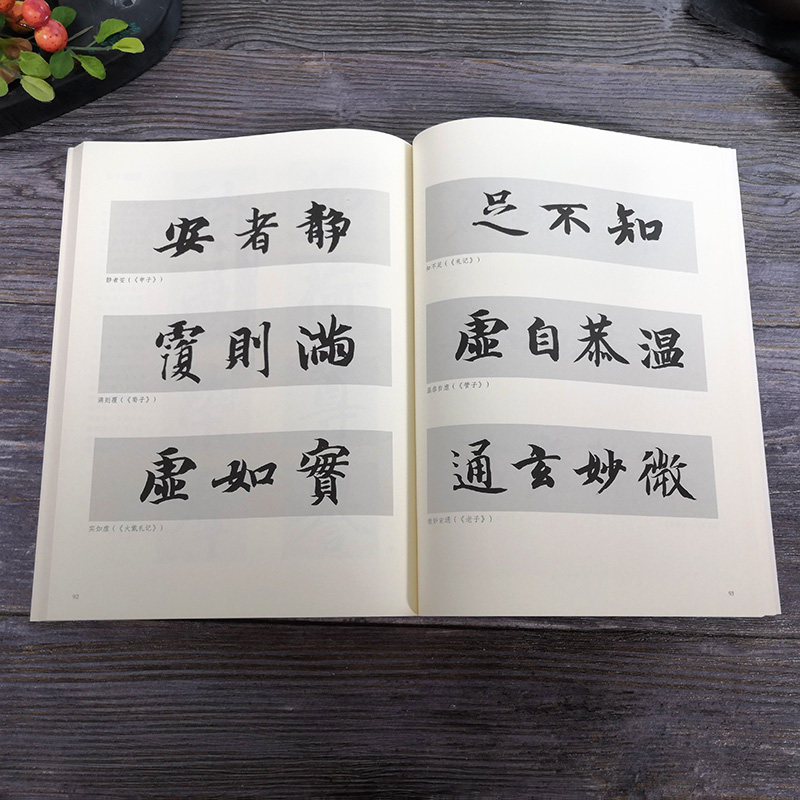 静者安
静者安(《申子》)
滿則覆
满则覆(《荀子》)
實如虛
实如虚(《大戴礼记》)
92
知不足
知不足(《礼记》)
温恭自虛
温恭自虚(《管子》)
微妙玄通
微妙玄通(《老子》)
93